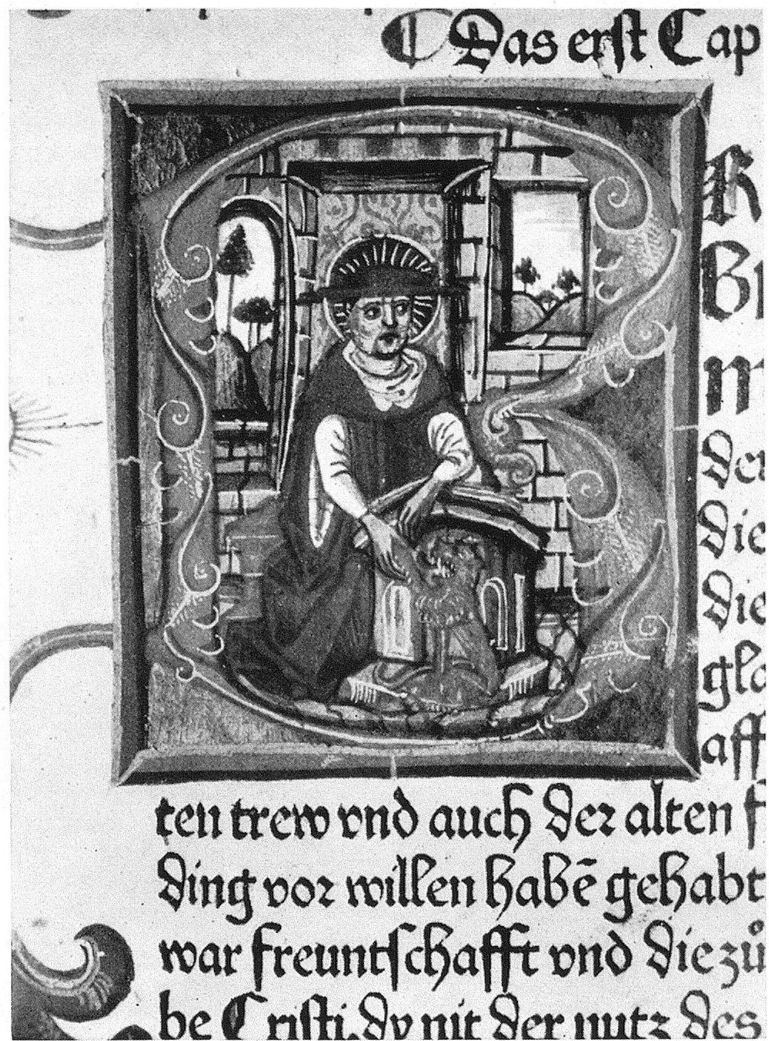 Das erſt Cap
B
R
die
die
aff
ten trew vnd auch der alten f
ding vor willen habē gehabt
war freuntſchafft vnd die zů
be Criſti. dy nit der nutz des